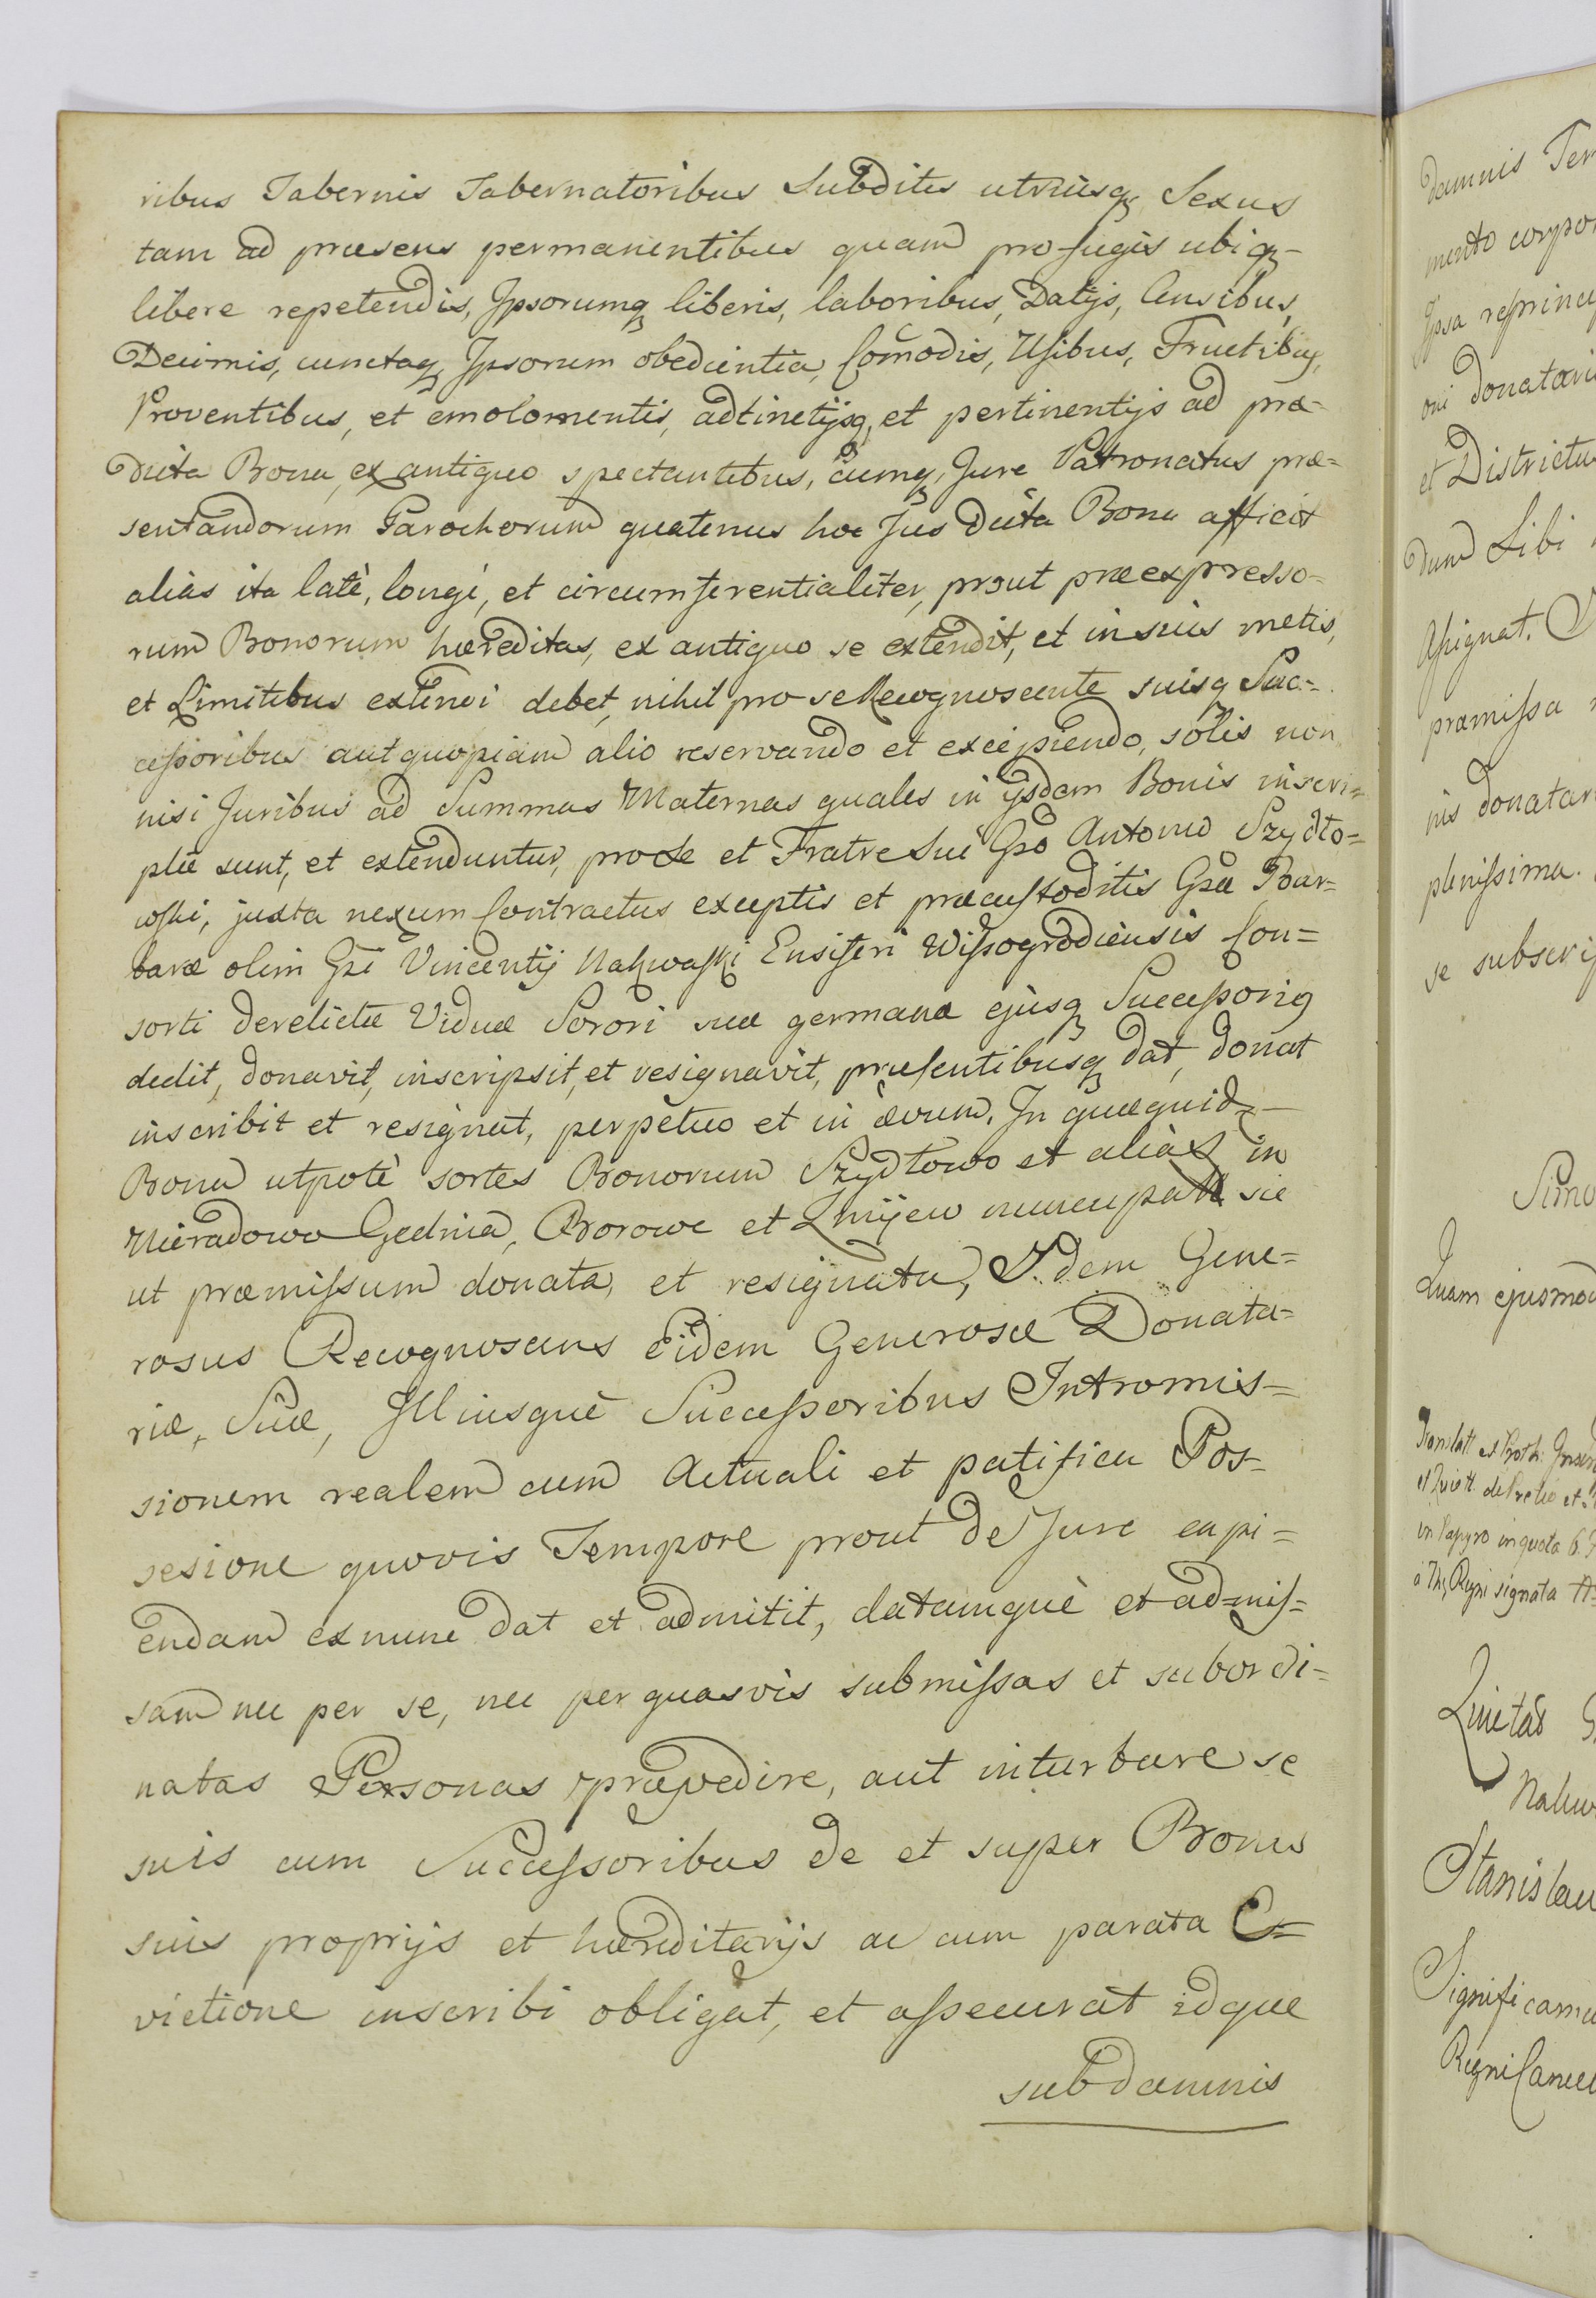 ribus Tabernis Tabernatoribus Subditis utriusq Sexus
tam ad præsens permanentibus quam profugis ubiq-
libere repetendis, Ipsorumq liberis, laboribus, Datijs, Censibus,
Decimis, cunctaq Ipsorum obedientia, Com̃odis, Usibus, Fructibus,
Proventibus, et emolomentis, adtinetijsq, et pertinentijs ad præ-
dicta Bona, ex antiquo spectantibus, cumq, Jure Patronatus præ=
sentandorum Parochorum quatenus hoc Jus dicta Bona afficit
alias ita latè, longè, et circumferentialiter, prout præexpresso=
rum Bonorum hæreditas, ex antiquo se extendit, et in suis metis,
et Limitibus extendi debet, nihil pro se Recognoscente suisq Suc=
cessoribus aut quopiam alio reservando et excipiendo, solis non
nisi Juribus ad Summas Maternas quales in ijsdem Bonis inscri=
ptæ sunt, et extenduntur, pro se et Fratre sui Gso Antonio Szydło=
wski, juxta nexum Contractus exceptis et præcustoditis Gsæ Bar=
baræ olim Gsi Vincentij Nakwaski Ensiferi Wissogrodiensis Con=
sorti derelictæ Viduæ Sorori suæ germanæ ejusq Successorib9
dedit, donavit, inscripsit, et resignavit, præsentibusq dat, donat
inscribit et resignat, perpetuo et in ævum. In quæquid-
Bona utpotè sortes Bonorum Szydłowo et aliàs in
Nieradowo Gednia, Borowe et Zmijewo nuncupatt sic
ut præmissum donata, et resignata, Idem Gene=
rosus Recognoscens Eidem Generosæ Donata=
riæ, Suæ, Illiusquè Successoribus Intromis=
sionem realem cum Actuali et patifica Pos-
sesione quovis Tempore prout de Jure capi=
endam ex nunc dat et admitit, datamquè et admis=
sam nec per se, nec per quasvis submissas et subordi=
natas Personas præpedire, aut inturbare se
suis cum Successoribus de et super Bonis
suis proprijs et hæreditarijs ac cum parata E=
victione inscribi obligat, et assecurat idque
sub damnis
damnis
mento
Ipsa
oni donatari
et Districtu
dum Sibi
Assignat.
præmissa
nis donatar
plenissima.
se subscrip
Quam ejusmod
Quietat
Nakw
Stanislau
Significamu
Regni Cancel